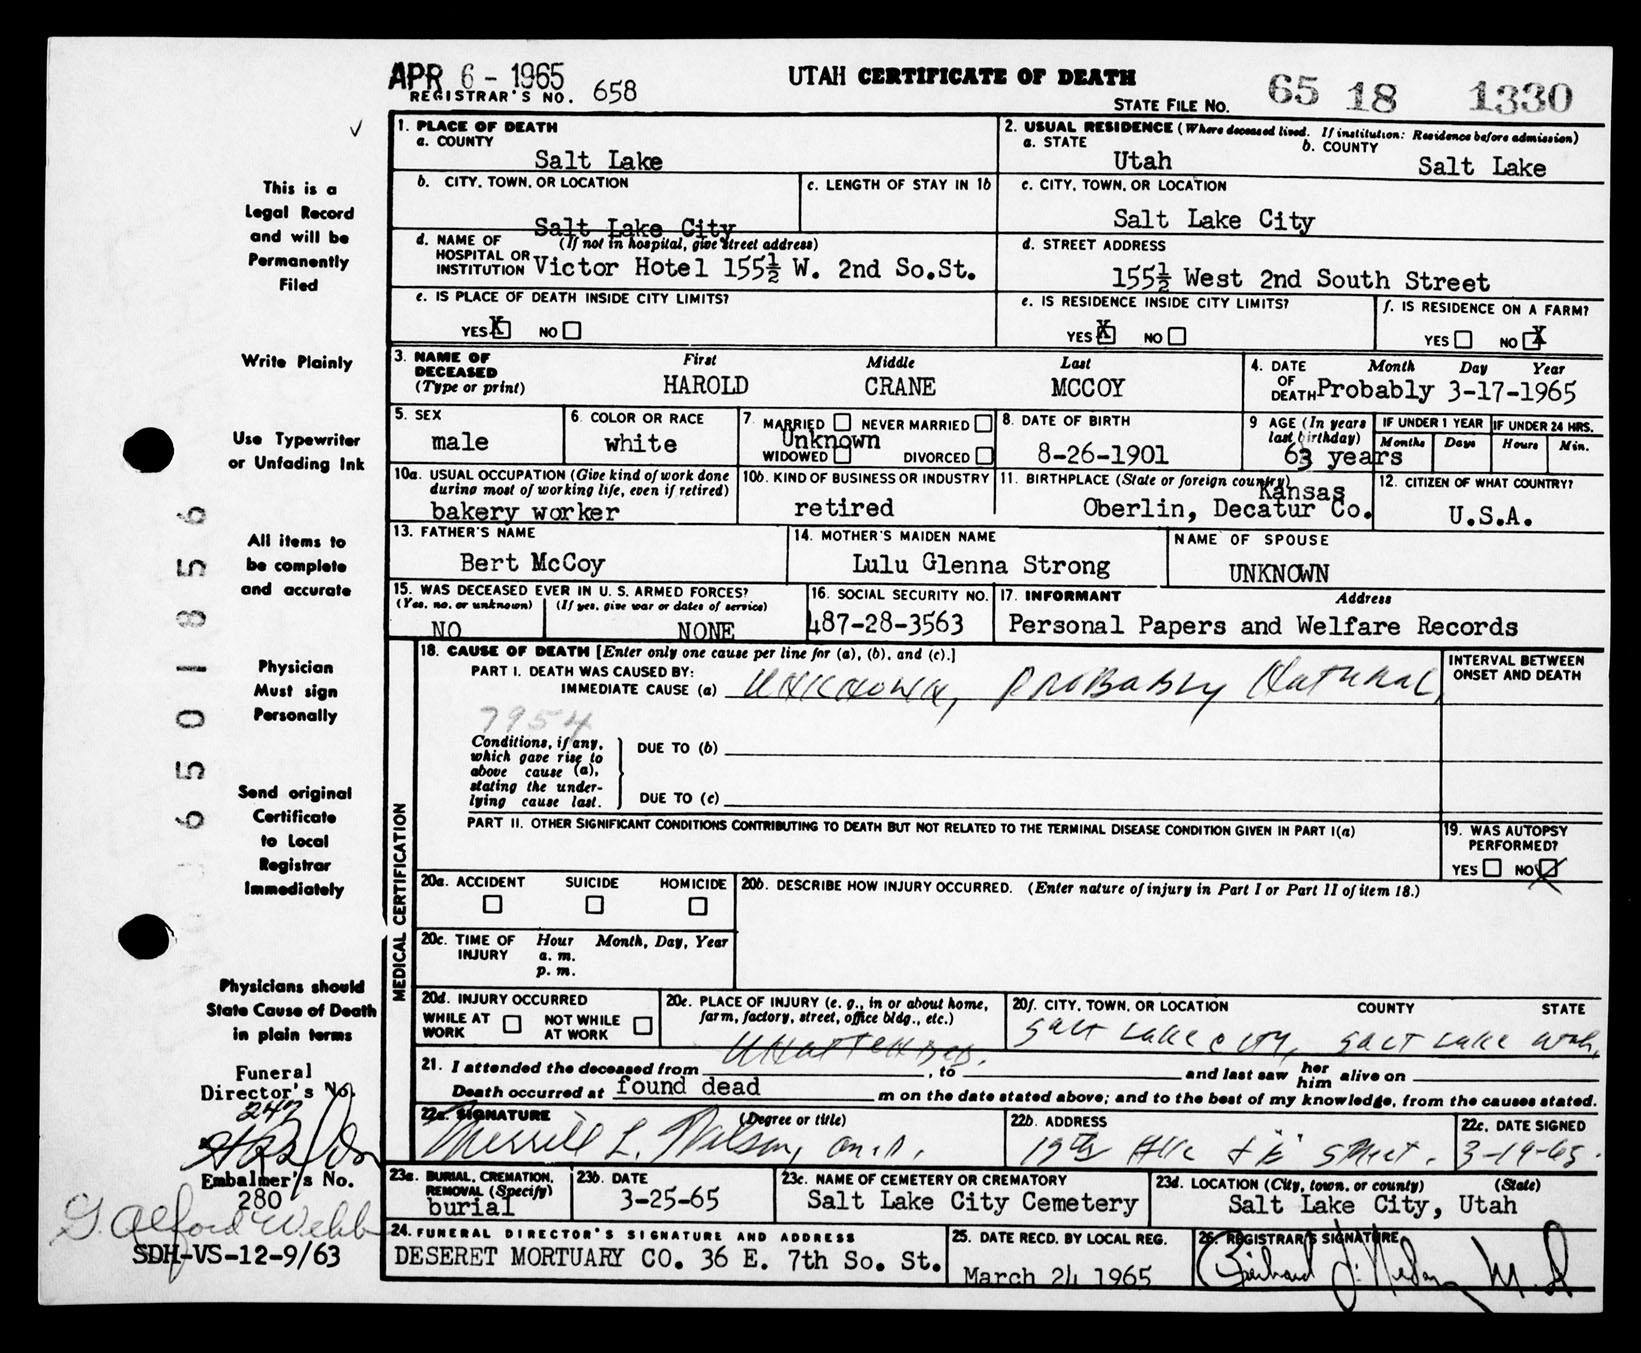 APR 6 - 1965
UTAH CERTIFICATE OF DEATH
REGISTRAR'S NO. 658
STATE FILE NO. 65 18 1330
✓
1. PLACE OF DEATH
a. COUNTY
Salt Lake
2. USUAL RESIDENCE (Where deceased lived. If institution: Residence before admission)
a. STATE
Utah
b. COUNTY
Salt Lake
b. CITY, TOWN, OR LOCATION
Salt Lake City
c. LENGTH OF STAY IN 1b
c. CITY, TOWN, OR LOCATION
Salt Lake City
d. NAME OF HOSPITAL OR INSTITUTION
(If not in hospital, give street address)
Victor Hotel 155½ W. 2nd So.St.
d. STREET ADDRESS
155½ West 2nd South Street
e. IS PLACE OF DEATH INSIDE CITY LIMITS?
YES X NO
e. IS RESIDENCE INSIDE CITY LIMITS?
YES X NO
f. IS RESIDENCE ON A FARM?
YES NO X
3. NAME OF DECEASED
(Type or print)
First Middle Last
HAROLD CRANE MCCOY
4. DATE OF DEATH
Month Day Year
Probably 3-17-1965
5. SEX
male
6. COLOR OR RACE
white
7. MARRIED NEVER MARRIED
Unknown
WIDOWED DIVORCED
8. DATE OF BIRTH
8-26-1901
9 AGE (In years last birthday)
63 years
IF UNDER 1 YEAR
Months Days
IF UNDER 24 HRS.
Hours Min.
10a. USUAL OCCUPATION (Give kind of work done during most of working life, even if retired)
bakery worker
10b. KIND OF BUSINESS OR INDUSTRY
retired
11. BIRTHPLACE (State or foreign country)
Kansas
Oberlin, Decatur Co.
12. CITIZEN OF WHAT COUNTRY?
U.S.A.
13. FATHER'S NAME
Bert McCoy
14. MOTHER'S MAIDEN NAME
Lulu Glenna Strong
NAME OF SPOUSE
UNKNOWN
15. WAS DECEASED EVER IN U. S. ARMED FORCES?
(Yes, no, or unknown) (If yes, give war or dates of service)
NO NONE
16. SOCIAL SECURITY NO.
487-28-3563
17. INFORMANT Address
Personal Papers and Welfare Records
MEDICAL CERTIFICATION
18. CAUSE OF DEATH [Enter only one cause per line for (a), (b), and (c).]
PART I. DEATH WAS CAUSED BY:
IMMEDIATE CAUSE (a) Unknown, Probably Natural,
INTERVAL BETWEEN ONSET AND DEATH
7954
Conditions, if any, which gave rise to above cause (a), stating the underlying cause last.
DUE TO (b)
DUE TO (c)
PART II. OTHER SIGNIFICANT CONDITIONS CONTRIBUTING TO DEATH BUT NOT RELATED TO THE TERMINAL DISEASE CONDITION GIVEN IN PART I(a)
19. WAS AUTOPSY PERFORMED?
YES NO X
20a. ACCIDENT SUICIDE HOMICIDE
20b. DESCRIBE HOW INJURY OCCURRED. (Enter nature of injury in Part I or Part II of item 18.)
20c. TIME OF INJURY
Hour Month, Day, Year
a. m.
p. m.
20d. INJURY OCCURRED
WHILE AT WORK NOT WHILE AT WORK
20e. PLACE OF INJURY (e. g., in or about home, farm, factory, street, office bldg., etc.)
20f. CITY, TOWN, OR LOCATION COUNTY STATE
Salt Lake City, Salt Lake Utah,
21. I attended the deceased from Unattended. , to and last saw her him alive on
Death occurred at found dead m on the date stated above; and to the best of my knowledge, from the causes stated.
22a. SIGNATURE (Degree or title)
Merrill L. Wilson, M.D.
22b. ADDRESS
12th Ave & "E" Street.
22c. DATE SIGNED
3-19-65.
23a. BURIAL, CREMATION, REMOVAL (Specify)
burial
23b. DATE
3-25-65
23c. NAME OF CEMETERY OR CREMATORY
Salt Lake City Cemetery
23d. LOCATION (City, town, or county) (State)
Salt Lake City, Utah
24. FUNERAL DIRECTOR'S SIGNATURE AND ADDRESS
DESERET MORTUARY CO. 36 E. 7th So. St.
25. DATE RECD. BY LOCAL REG.
March 24 1965
26. REGISTRAR'S SIGNATURE
This is a
Legal Record
and will be
Permanently
Filed
Write Plainly
Use Typewriter
or Unfading Ink
All items to
be complete
and accurate
Physician
Must sign
Personally
Send original
Certificate
to Local
Registrar
Immediately
Physicians should
State Cause of Death
in plain terms
Funeral
Director's No.
247
Embalmer's No.
280
G. Alford Webb
SDH-VS-12-9/63
6501856